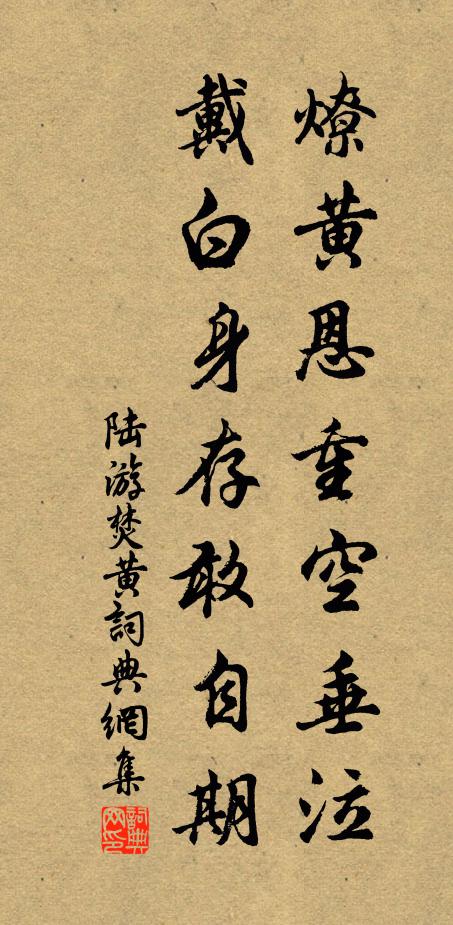 燎黄恩重空垂泣
戴白身存敢自期
陆游焚黄詞典網集
詞典网印